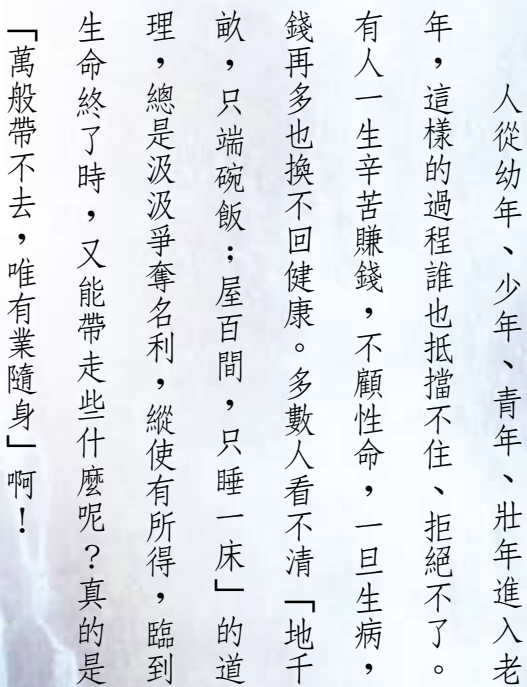 人從幼年、少年、青年、壯年進入老
年，這樣的過程誰也抵擋不住、拒絕不了。
有人一生辛苦賺錢，不顧性命，一旦生病，
錢再多也換不回健康。多數人看不清「地千
畝，只端碗飯；屋百間，只睡一床」的道
理，總是汲汲爭奪名利，縱使有所得，臨到
生命終了時，又能帶走些什麼呢？真的是
「萬般帶不去，唯有業隨身」啊！